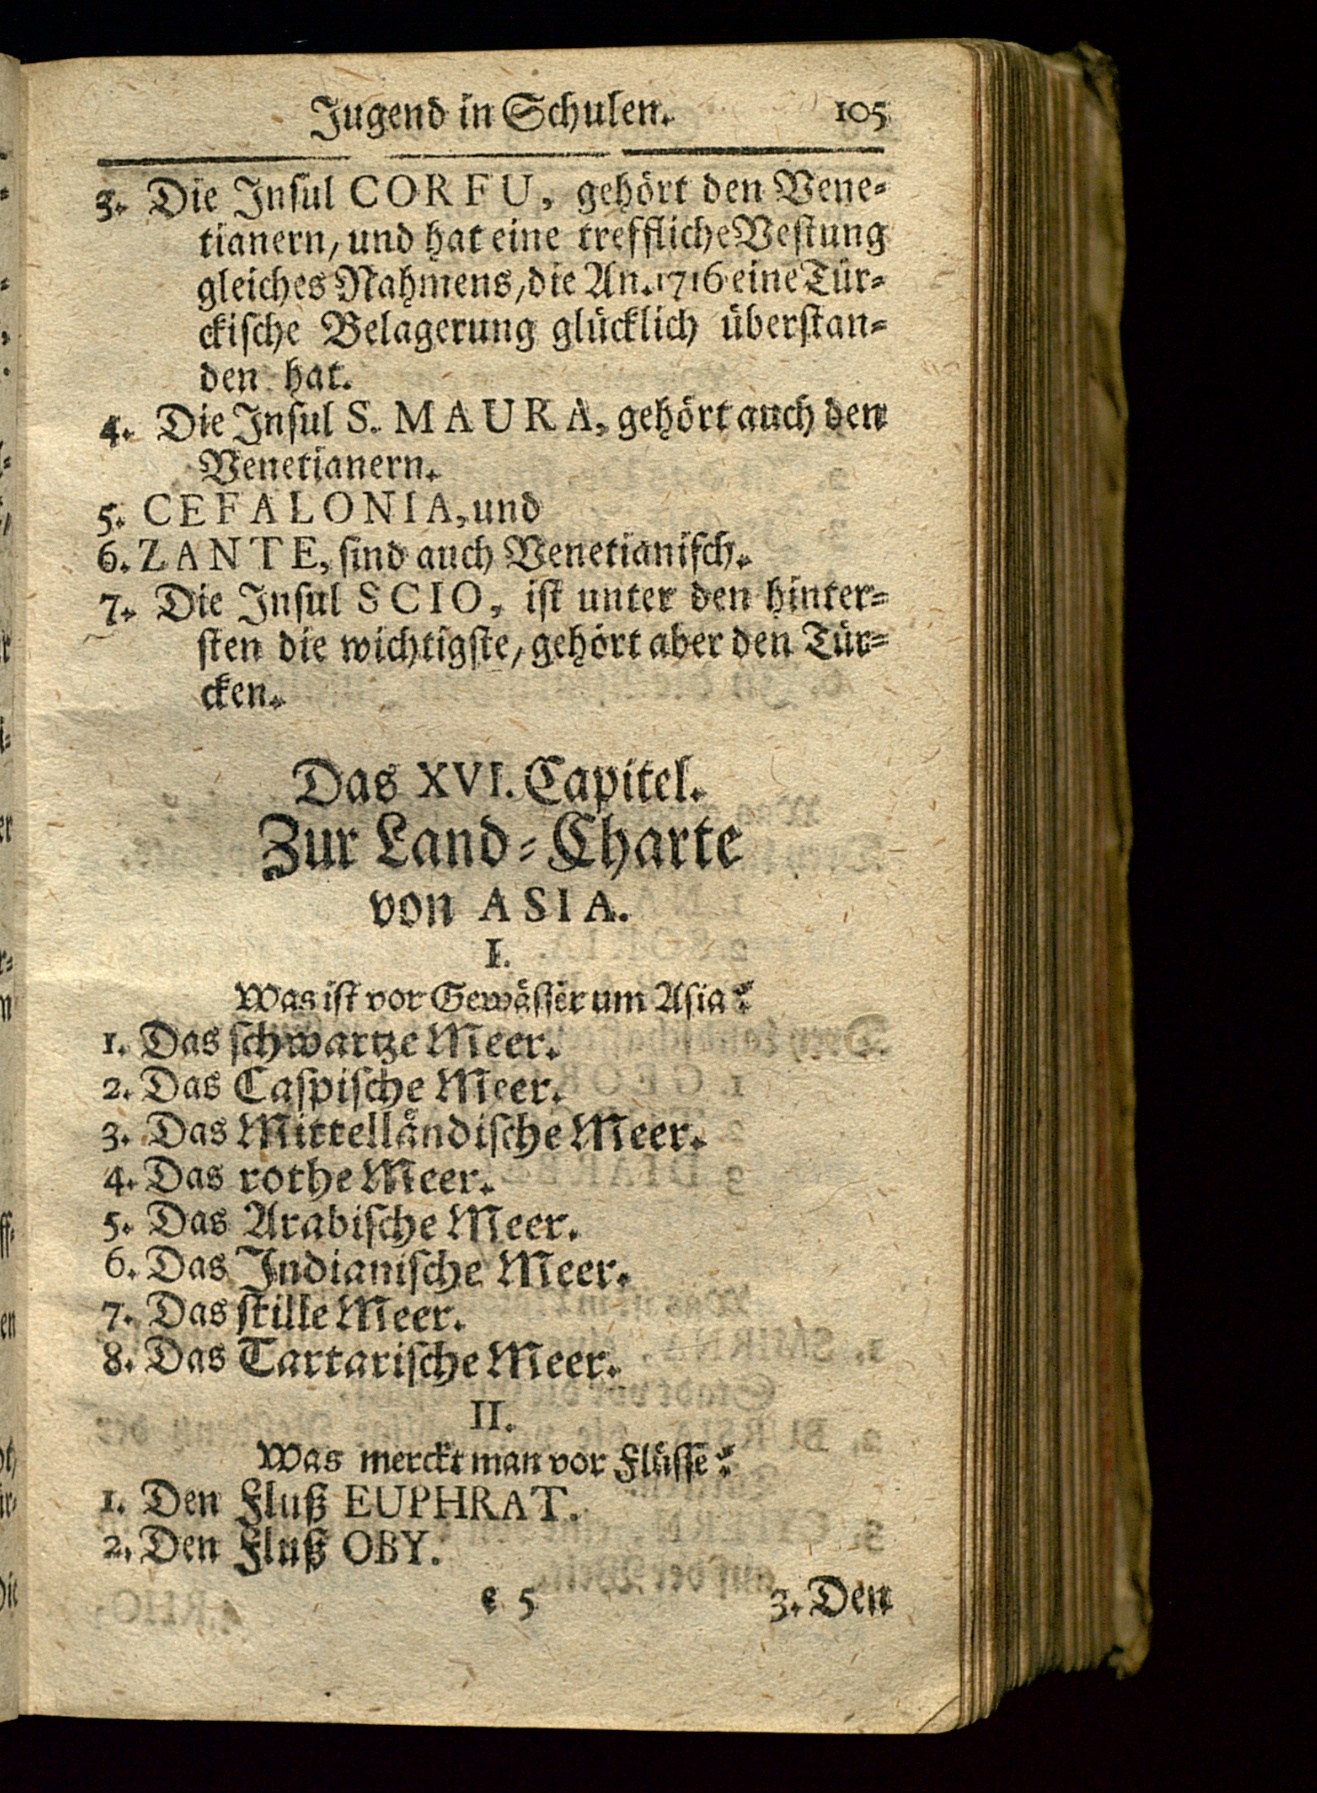 Jugend in Schulen. 105
3. Die Insul CORFU, gehört den Vene-
tianern, und hat eine treffliche Vestung
gleiches Nahmens, die An. 1716 eine Tür-
ckische Belagerung glücklich überstan-
den hat.
4. Die Insul S. MAURA, gehört auch den
Venetianern.
5. CEFALONIA, und
6. ZANTE, sind auch Venetianisch.
7. Die Insul SCIO, ist unter den hinter-
sten die wichtigste, gehört aber den Tür-
cken.
Das XVI. Capitel.
Zur Land-Charte
von ASIA.
I.
Was ist vor Gewässer um Asia?
1. Das schwartze Meer.
2. Das Caspische Meer.
3. Das Mittelländische Meer.
4. Das rothe Meer.
5. Das Arabische Meer.
6. Das Indianische Meer.
7. Das stille Meer.
8. Das Tartarische Meer.
II.
Was merckt man vor Flüsse?
1. Den Fluß EUPHRAT.
2. Den Fluß OBY.
e 5 3. Den